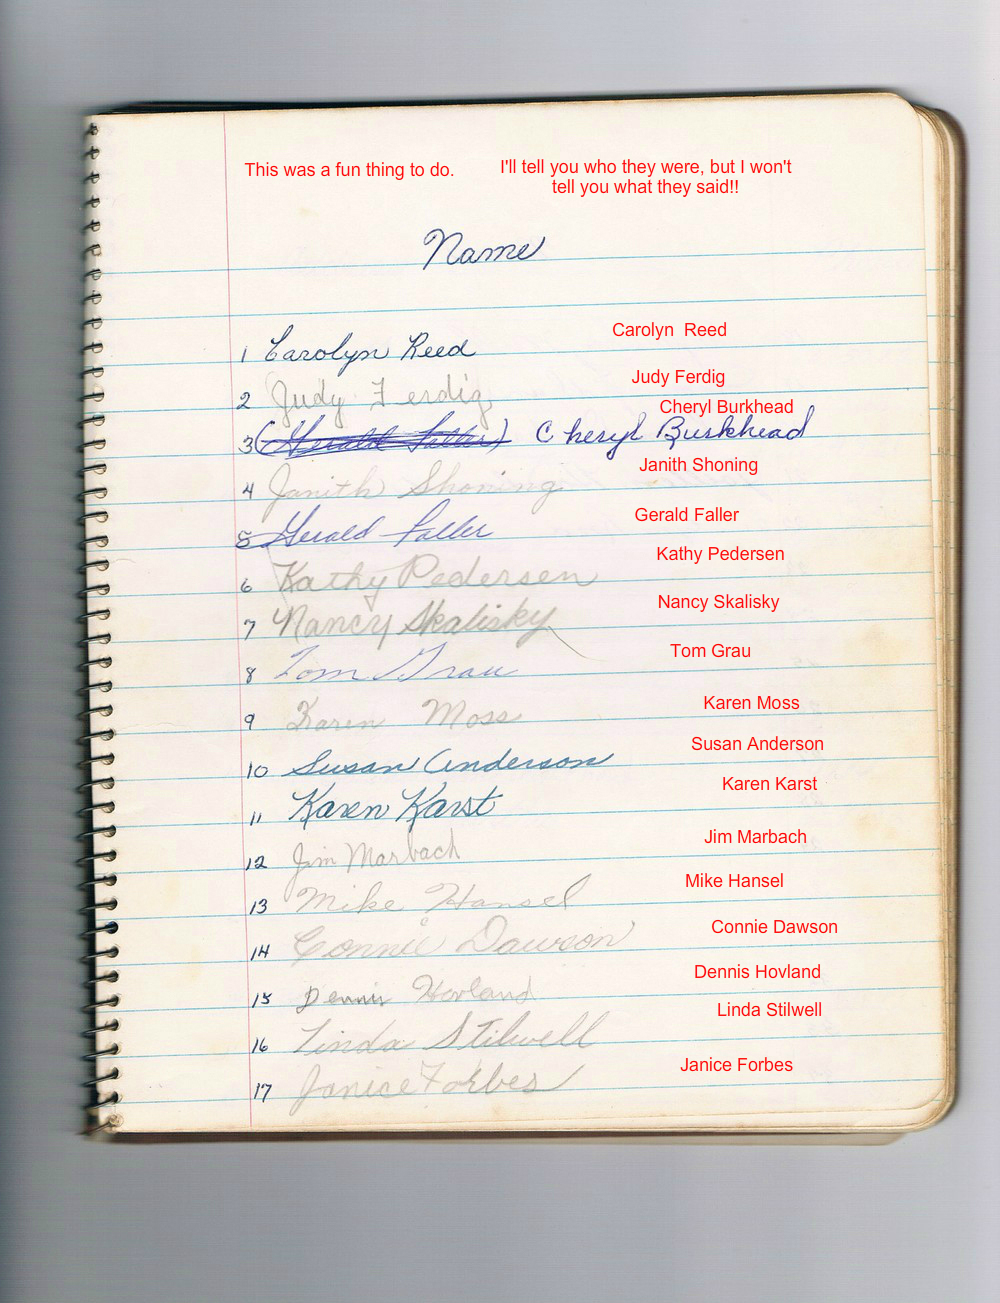 This was a fun thing to do.
I'll tell you who they were, but I won't
tell you what they said!!
Name
Carolyn  Reed
1 Carolyn Reed
Judy Ferdig
2 Judy Ferdig
Cheryl Burkhead
3 (Gerald Faller) Cheryl Burkhead
Janith Shoning
4 Janith Shoning
Gerald Faller
5 Gerald Faller
Kathy Pedersen
6 Kathy Pedersen
Nancy Skalisky
7 Nancy Skalisky
Tom Grau
8 Tom Grau
Karen Moss
9 Karen Moss
Susan Anderson
10 Susan Anderson
Karen Karst
11 Karen Karst
Jim Marbach
12 Jim Marbach
Mike Hansel
13 Mike Hansel
Connie Dawson
14 Connie Dawson
Dennis Hovland
15 Dennis Hovland
Linda Stilwell
16 Linda Stilwell
Janice Forbes
17 Janice Forbes